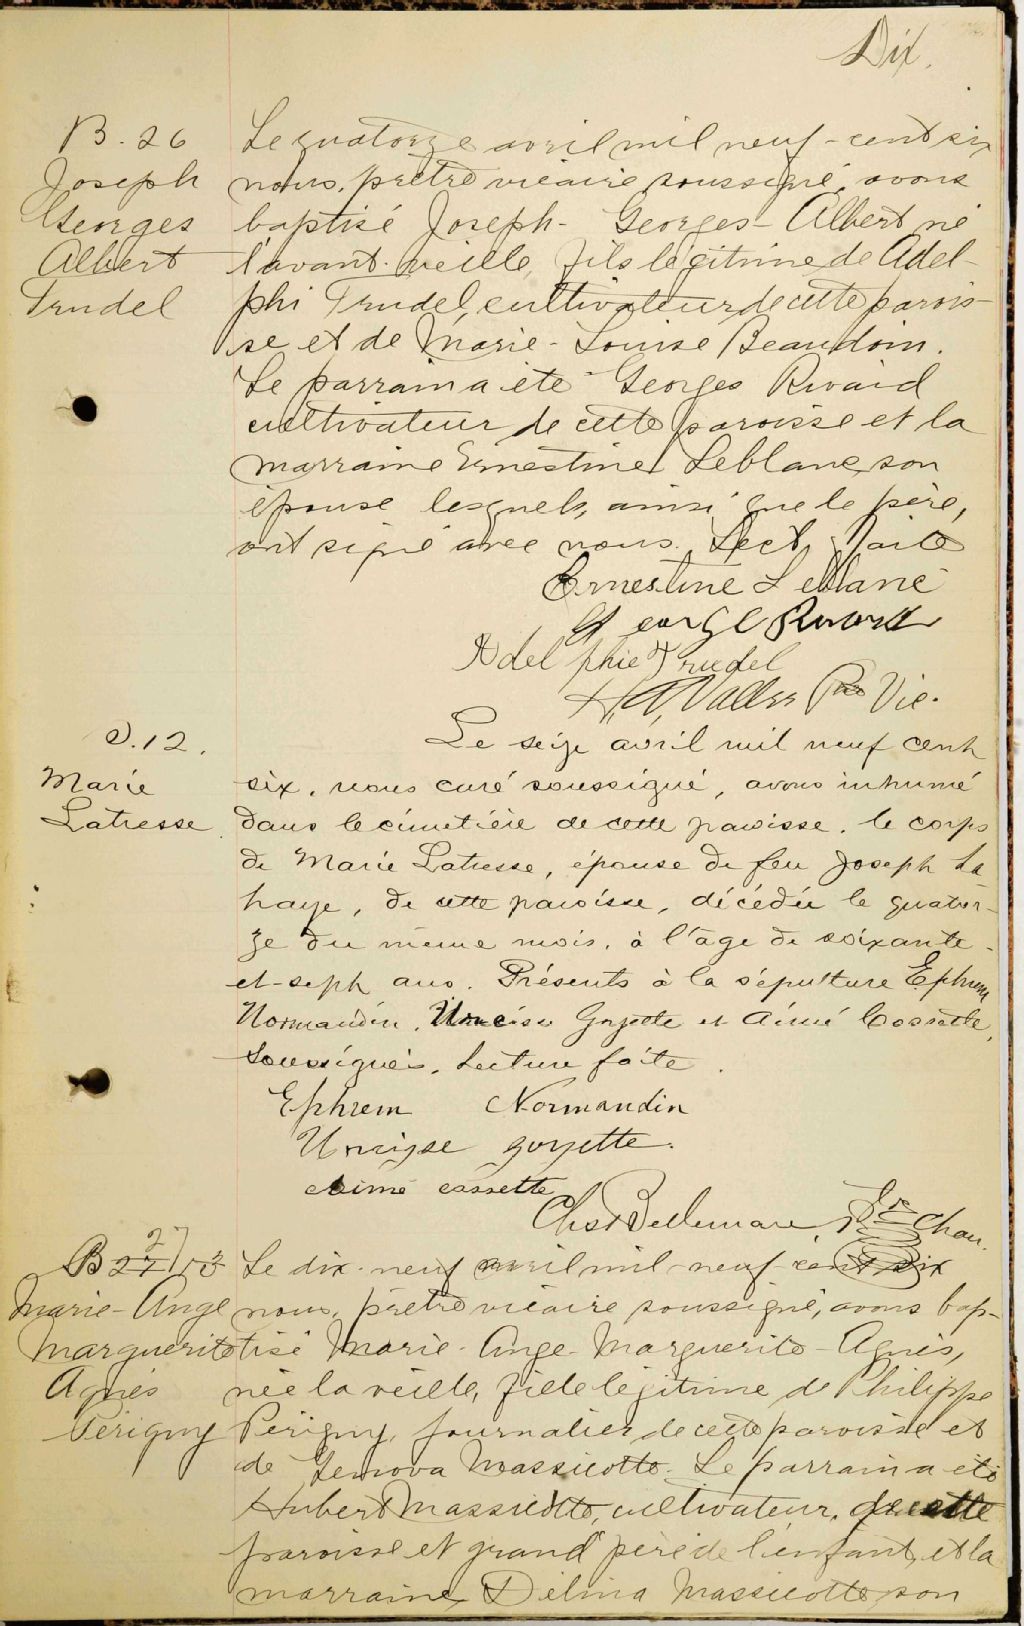 Dix.
B. 26
Joseph
Georges
Albert
Trudel
Le quatorze avril mil neuf-cent six
nous, prêtre vicaire soussigné, avons
baptisé Joseph-Georges-Albert né
l'avant-veille, fils légitime de Adel-
phi Trudel, cultivateur de cette parois-
se et de Marie-Louise Beaudoin.
Le parrain a été Georges Rivard
cultivateur de cette paroisse et la
marraine Ernestine Leblanc, son
épouse lesquels, ainsi que le père,
ont signé avec nous. Lect. faite
Ernestine Leblanc
George Rivard
Adelphie Trudel
Ptre Vic.
S. 12.
Marie
Latresse
Le seize avril mil neuf cent
six, nous curé soussigné, avons inhumé
dans le cimetière de cette paroisse, le corps
de Marie Latresse, épouse de feu Joseph La
haye, de cette paroisse, décédée le quator-
ze du même mois, à l'âge de soixante-
et-sept ans. Présents à la sépulture Ephrem
Normandin, Goyette et Aimé Cossette,
Soussignés. Lecture faite.
Ephrem Normandin
goyette.
Aimé cossette
Chs Bellemare, Ptre Chan.
B 27
Marie-Ange
Marguerite
Agnès
Périgny
Le dix-neuf avril mil-neuf-cent-six
nous, prêtre vicaire soussigné, avons bap-
tisé Marie-Ange-Marguerite-Agnès,
née la veille, fille légitime de Philippe
Périgny, journalier de cette paroisse et
de Genova Massicotte. Le parrain a été
Hubert Massicotte, cultivateur, de cette
paroisse et grand père de l'enfant, et la
marraine Délina Massicotte son